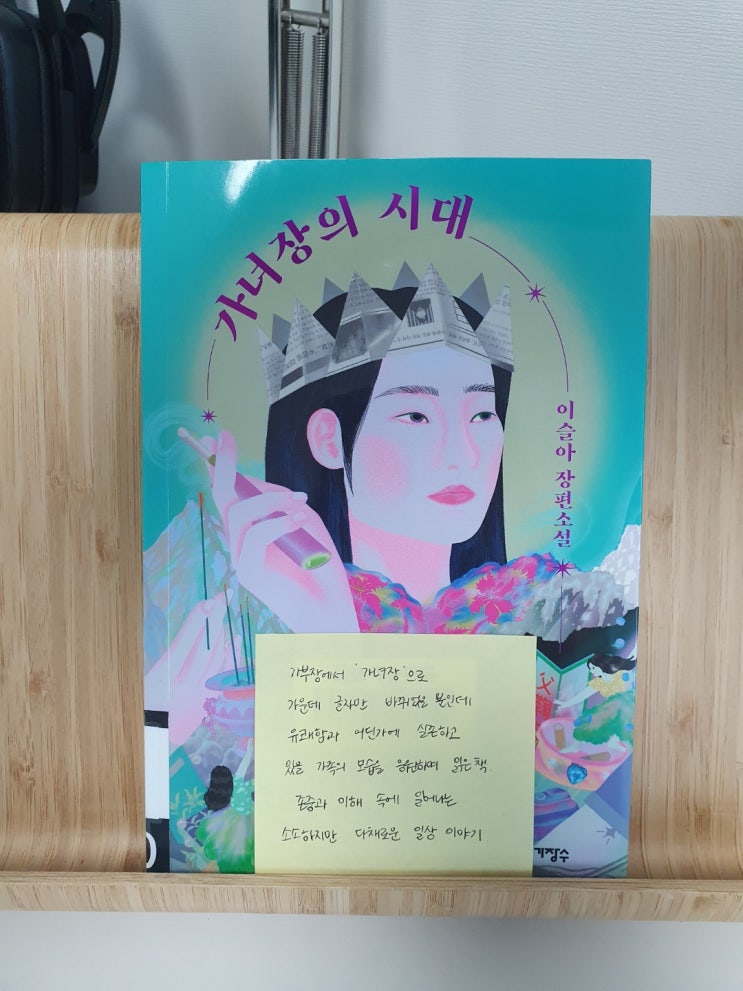 가녀장의 시대
이슬아 장편소설
가부장에서 '가녀장'으로
가운데 글자만 바뀌었을 뿐인데
유쾌함과 어딘가에 실존하고
있을 가족의 모습을 응원하며 읽은 책.
존중과 이해 속에 일어나는
소소하지만 다채로운 일상 이야기
父
기장수